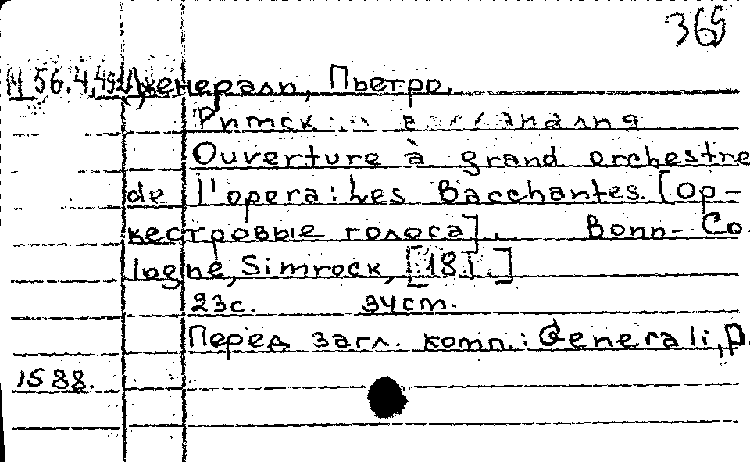 369
Дженерали, Пьетро.
Ouverture à grand orchestre
de l'opera: Les Bacchantes. [Ор-
кестровые голоса]. Bonn-Co
logne, Simrock, [18..]
23с. 34cm.
Перед загл. комп.: Generali, P.
1588.